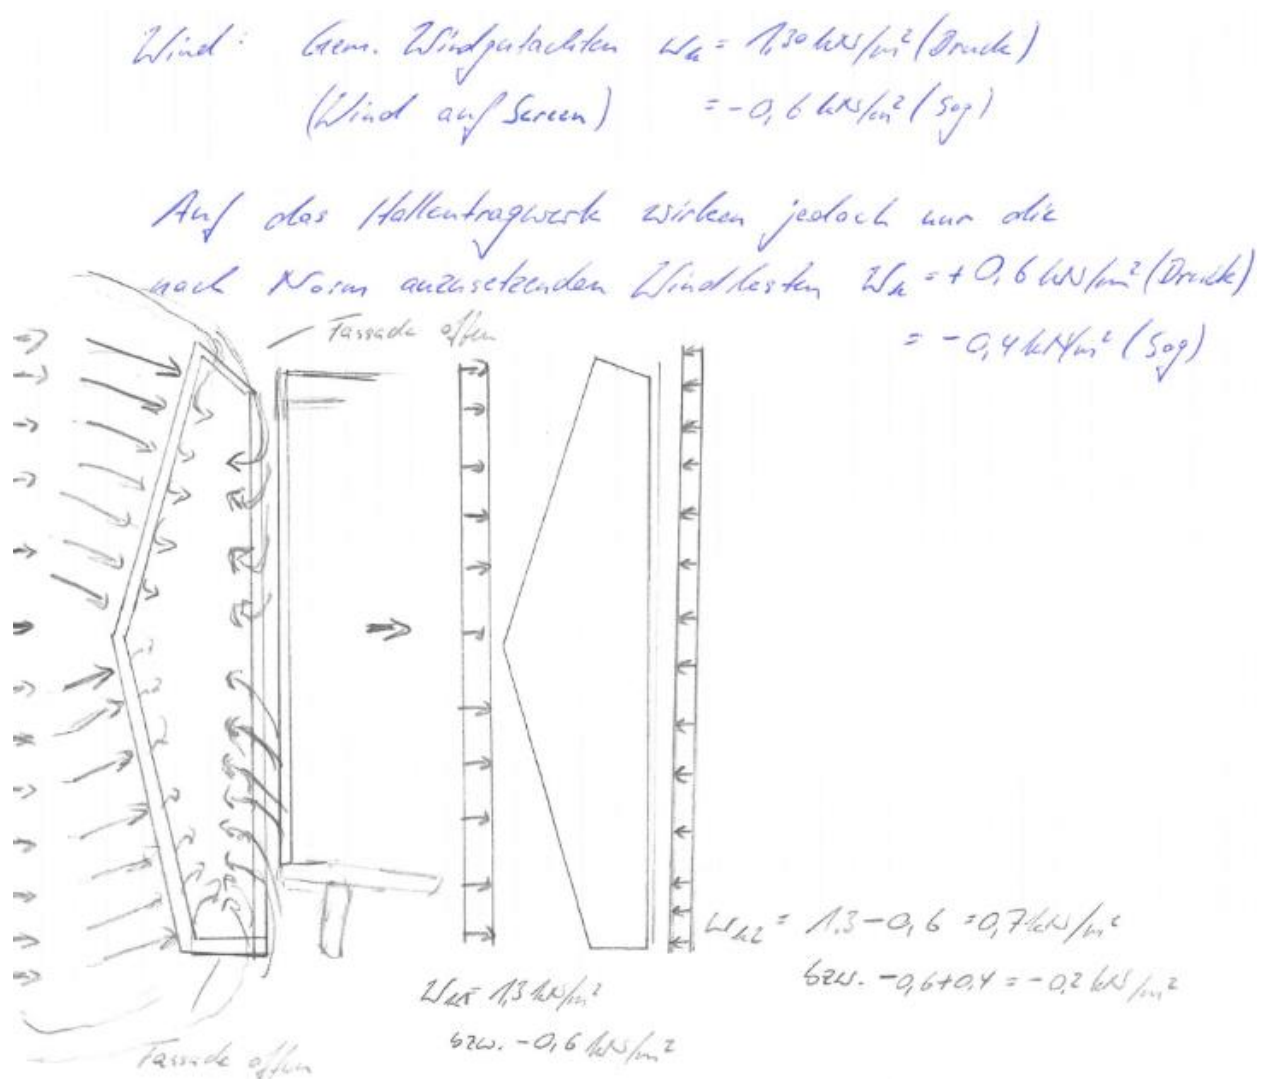 Wind: Gem. Windgutachten wk = 1,30 kN/m² (Druck)
(Wind auf Screen) = -0,6 kN/m² (Sog)
Auf das Hallentragwerk wirken jedoch nur die
nach Norm anzusetzenden Windlasten Wk = +0,6 kN/m² (Druck)
= -0,4 kN/m² (Sog)
Fassade offen
wk2 = 1.3-0,6 = 0,7 kN/m²
bzw. -0,6+0,4 = -0,2 kN/m²
Wk1= 1,3 kN/m²
bzw. -0,6 kN/m²
Fassade offen